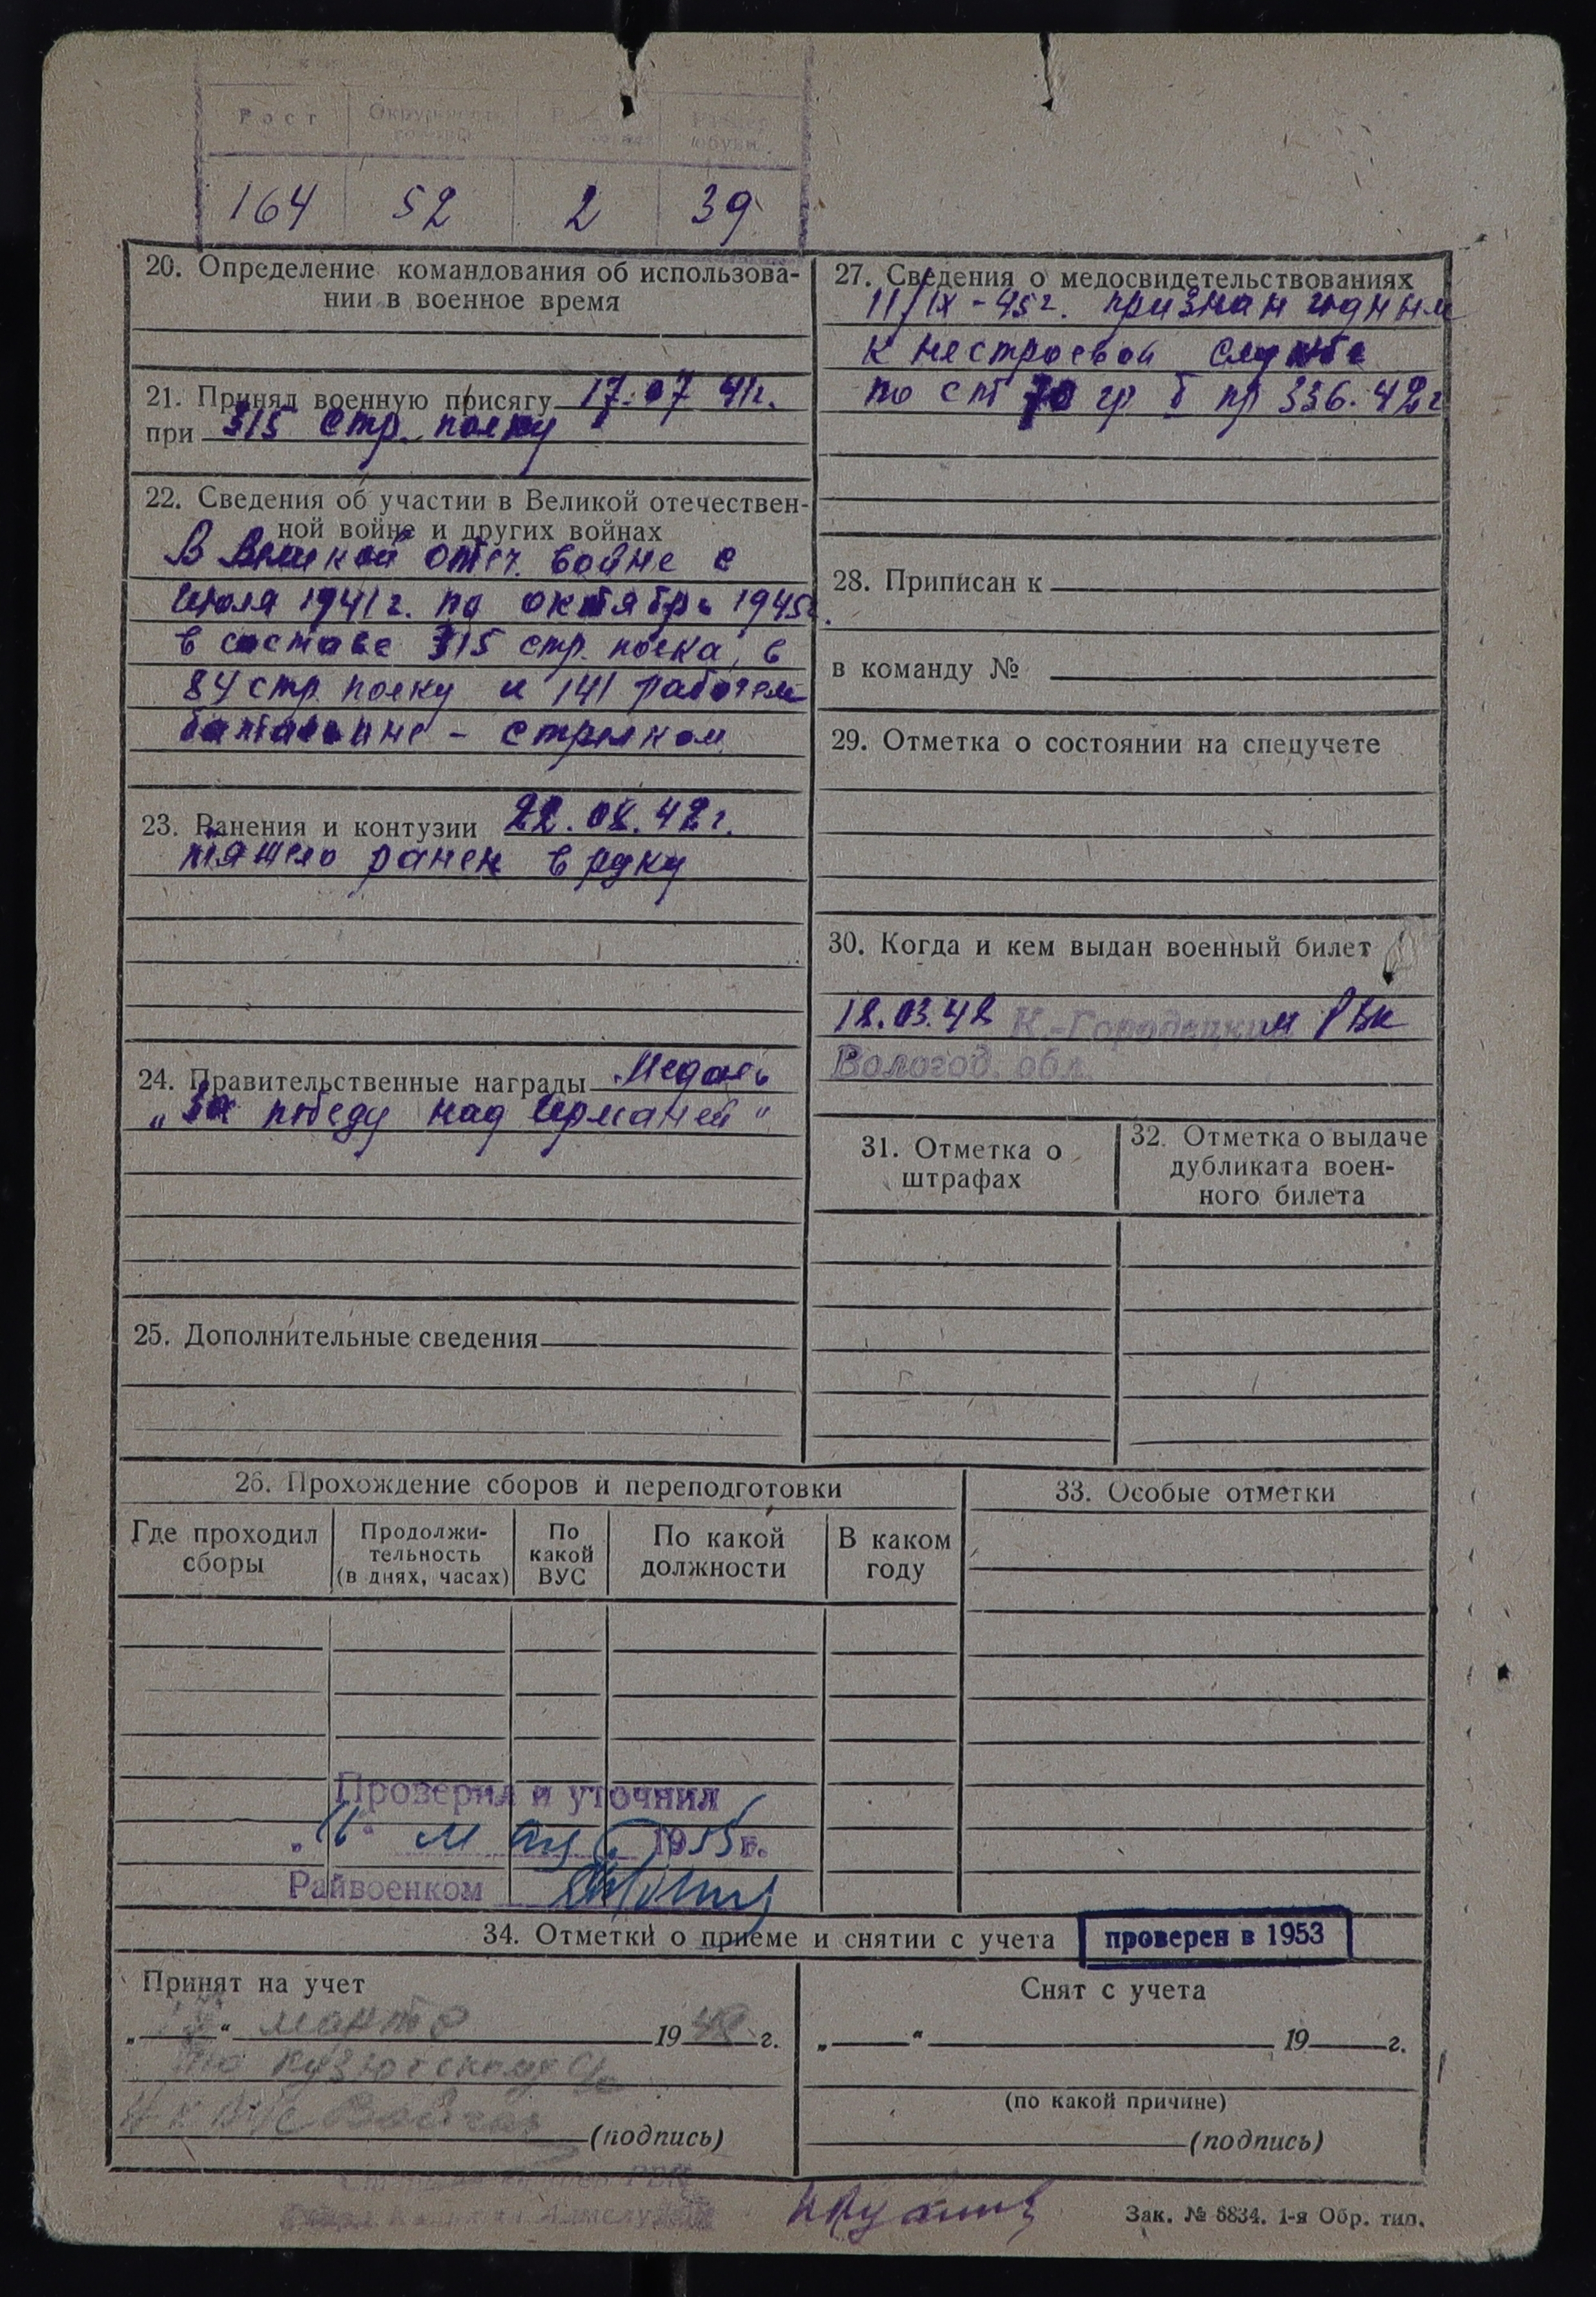 Рост Окружность головы
обуви
164 52 2 39
20. Определение командования об использова-
нии в военное время
21. Принял военную присягу 17.07 41г.
при 315 стр. полку
22. Сведения об участии в Великой отечествен-
ной войне и других войнах
В Великой отеч. войне с
июля 1941 г. по октябрь 1945г.
в составе 315 стр. полка, в
84 стр. полку и 141 рабочем
батальоне - стрелком
23. Ранения и контузии 22.08.42 г.
тяжело ранен в руку
24. Правительственные награды Медаль
„За победу над Германией"
25. Дополнительные сведения
26. Прохождение сборов и переподготовки
Где проходил сборы
Продолжи-
тельность
(в днях, часах)
По
какой
ВУС
По какой
должности
В каком
году
Проверил и уточнил
„11" мая 1955г.
Райвоенком
27. Сведения о медосвидетельствованиях
11/IX-45г. признан годным
к нестроевой службе
по ст 70 гр б пр 336.42г
28. Приписан к
в команду №
29. Отметка о состоянии на спецучете
30. Когда и кем выдан военный билет
18.03.48 К.-Городецким РВК
Вологод. обл.
31. Отметка о
штрафах
32. Отметка о выдаче
дубликата воен-
ного билета
33. Особые отметки
34. Отметки о приеме и снятии с учета
проверен в 1953
Принят на учет
„ " марта 1948 г.
по
(подпись)
Снят с учета
„ " 19 г.
(по какой причине)
(подпись)
Зак. № 6834. 1-я Обр. тип.